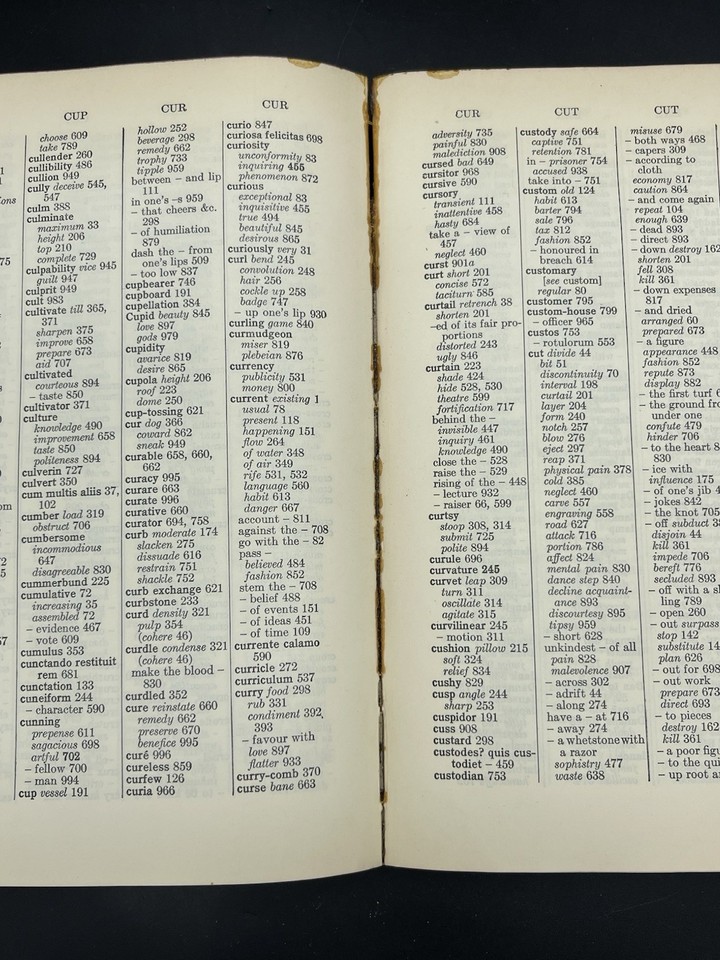 CUP
choose 609
take 789
cullender 260
cullibility 486
cullion 949
cully deceive 545,
547
culm 388
culminate
maximum 33
height 206
top 210
complete 729
culpability vice 945
guilt 947
culprit 949
cult 983
cultivate till 365,
371
sharpen 375
improve 658
prepare 673
aid 707
cultivated
courteous 894
– taste 850
cultivator 371
culture
knowledge 490
improvement 658
taste 850
politeness 894
culverin 727
culvert 350
cum multis aliis 37,
102
cumber load 319
obstruct 706
cumbersome
incommodious
647
disagreeable 830
cummerbund 225
cumulative 72
increasing 35
assembled 72
– evidence 467
– vote 609
cumulus 353
cunctando restituit
rem 681
cunctation 133
cuneiform 244
– character 590
cunning
prepense 611
sagacious 698
artful 702
– fellow 700
– man 994
cup vessel 191
CUR
hollow 252
beverage 298
remedy 662
trophy 733
tipple 959
between – and lip
111
in one's –s 959
– that cheers &c.
298
– of humiliation
879
dash the – from
one's lips 509
– too low 837
cupbearer 746
cupboard 191
cupellation 384
Cupid beauty 845
love 897
gods 979
cupidity
avarice 819
desire 865
cupola height 206
roof 223
dome 250
cup-tossing 621
cur dog 366
coward 862
sneak 949
curable 658, 660,
662
curacy 995
curare 663
curate 996
curative 660
curator 694, 758
curb moderate 174
slacken 275
dissuade 616
restrain 751
shackle 752
curb exchange 621
curbstone 233
curd density 321
pulp 354
(cohere 46)
curdle condense 321
(cohere 46)
make the blood –
830
curdled 352
cure reinstate 660
remedy 662
preserve 670
benefice 995
curé 996
cureless 859
curfew 126
curia 966
CUR
curio 847
curiosa felicitas 698
curiosity
unconformity 83
inquiring 455
phenomenon 872
curious
exceptional 83
inquisitive 455
true 494
beautiful 845
desirous 865
curiously very 31
curl bend 245
convolution 248
hair 256
cockle up 258
badge 747
– up one's lip 930
curling game 840
curmudgeon
miser 819
plebeian 876
currency
publicity 531
money 800
current existing 1
usual 78
present 118
happening 151
flow 264
of water 348
of air 349
rife 531, 532
language 560
habit 613
danger 667
account – 811
against the – 708
go with the – 82
pass –
believed 484
fashion 852
stem the – 708
– belief 488
– of events 151
– of ideas 451
– of time 109
currente calamo
590
curricle 272
curriculum 537
curry food 298
rub 331
condiment 392,
393
– favour with
love 897
flatter 933
curry-comb 370
curse bane 663
CUR
adversity 735
painful 830
malediction 908
cursed bad 649
cursitor 968
cursive 590
cursory
transient 111
inattentive 458
hasty 684
take a – view of
457
neglect 460
curst 901a
curt short 201
concise 572
taciturn 585
curtail retrench 38
shorten 201
–ed of its fair pro-
portions
distorted 243
ugly 846
curtain 223
shade 424
hide 528, 530
theatre 599
fortification 717
behind the –
invisible 447
inquiry 461
knowledge 490
close the – 528
raise the – 529
rising of the – 448
– lecture 932
– raiser 66, 599
curtsy
stoop 308, 314
submit 725
polite 894
curule 696
curvature 245
curvet leap 309
turn 311
oscillate 314
agitate 315
curvilinear 245
– motion 311
cushion pillow 215
soft 324
relief 834
cushy 829
cusp angle 244
sharp 253
cuspidor 191
cuss 908
custard 298
custodes? quis cus-
todiet – 459
custodian 753
CUT
custody safe 664
captive 751
retention 781
in – prisoner 754
accused 938
take into – 751
custom old 124
habit 613
barter 794
sale 796
tax 812
fashion 852
– honoured in
breach 614
customary
[see custom]
regular 80
customer 795
custom-house 799
– officer 965
custos 753
– rotulorum 553
cut divide 44
bit 51
discontinuity 70
interval 198
curtail 201
layer 204
form 240
notch 257
blow 276
eject 297
reap 371
physical pain 378
cold 385
neglect 460
carve 557
engraving 558
road 627
attack 716
portion 786
affect 824
mental pain 830
dance step 840
decline acquaint-
ance 893
discourtesy 895
tipsy 959
– short 628
unkindest – of all
pain 828
malevolence 907
– across 302
– adrift 44
– along 274
have a – at 716
– away 274
– a whetstone with
a razor
sophistry 477
waste 638
CUT
misuse 679
– both ways 468
– capers 309
– according to
cloth
economy 817
caution 864
– and come again
repeat 104
enough 639
– dead 893
– direct 893
– down destroy 162
shorten 201
fell 308
kill 361
– down expenses
817
– and dried
arranged 60
prepared 673
– a figure
appearance 448
fashion 852
repute 873
display 882
– the first turf
– the ground
under one
confute 479
hinder 706
– to the heart
830
– ice with
influence 175
– of one's jib
– jokes 842
– the knot 705
– off subduct
disjoin 44
kill 361
impede 706
bereft 776
secluded 893
– off with a
ling 789
– open 260
– out surpass
stop 142
substitute
plan 626
– out for 698
– out work
prepare 673
direct 693
– to pieces
destroy 162
kill 361
– a poor
– to the
– up root